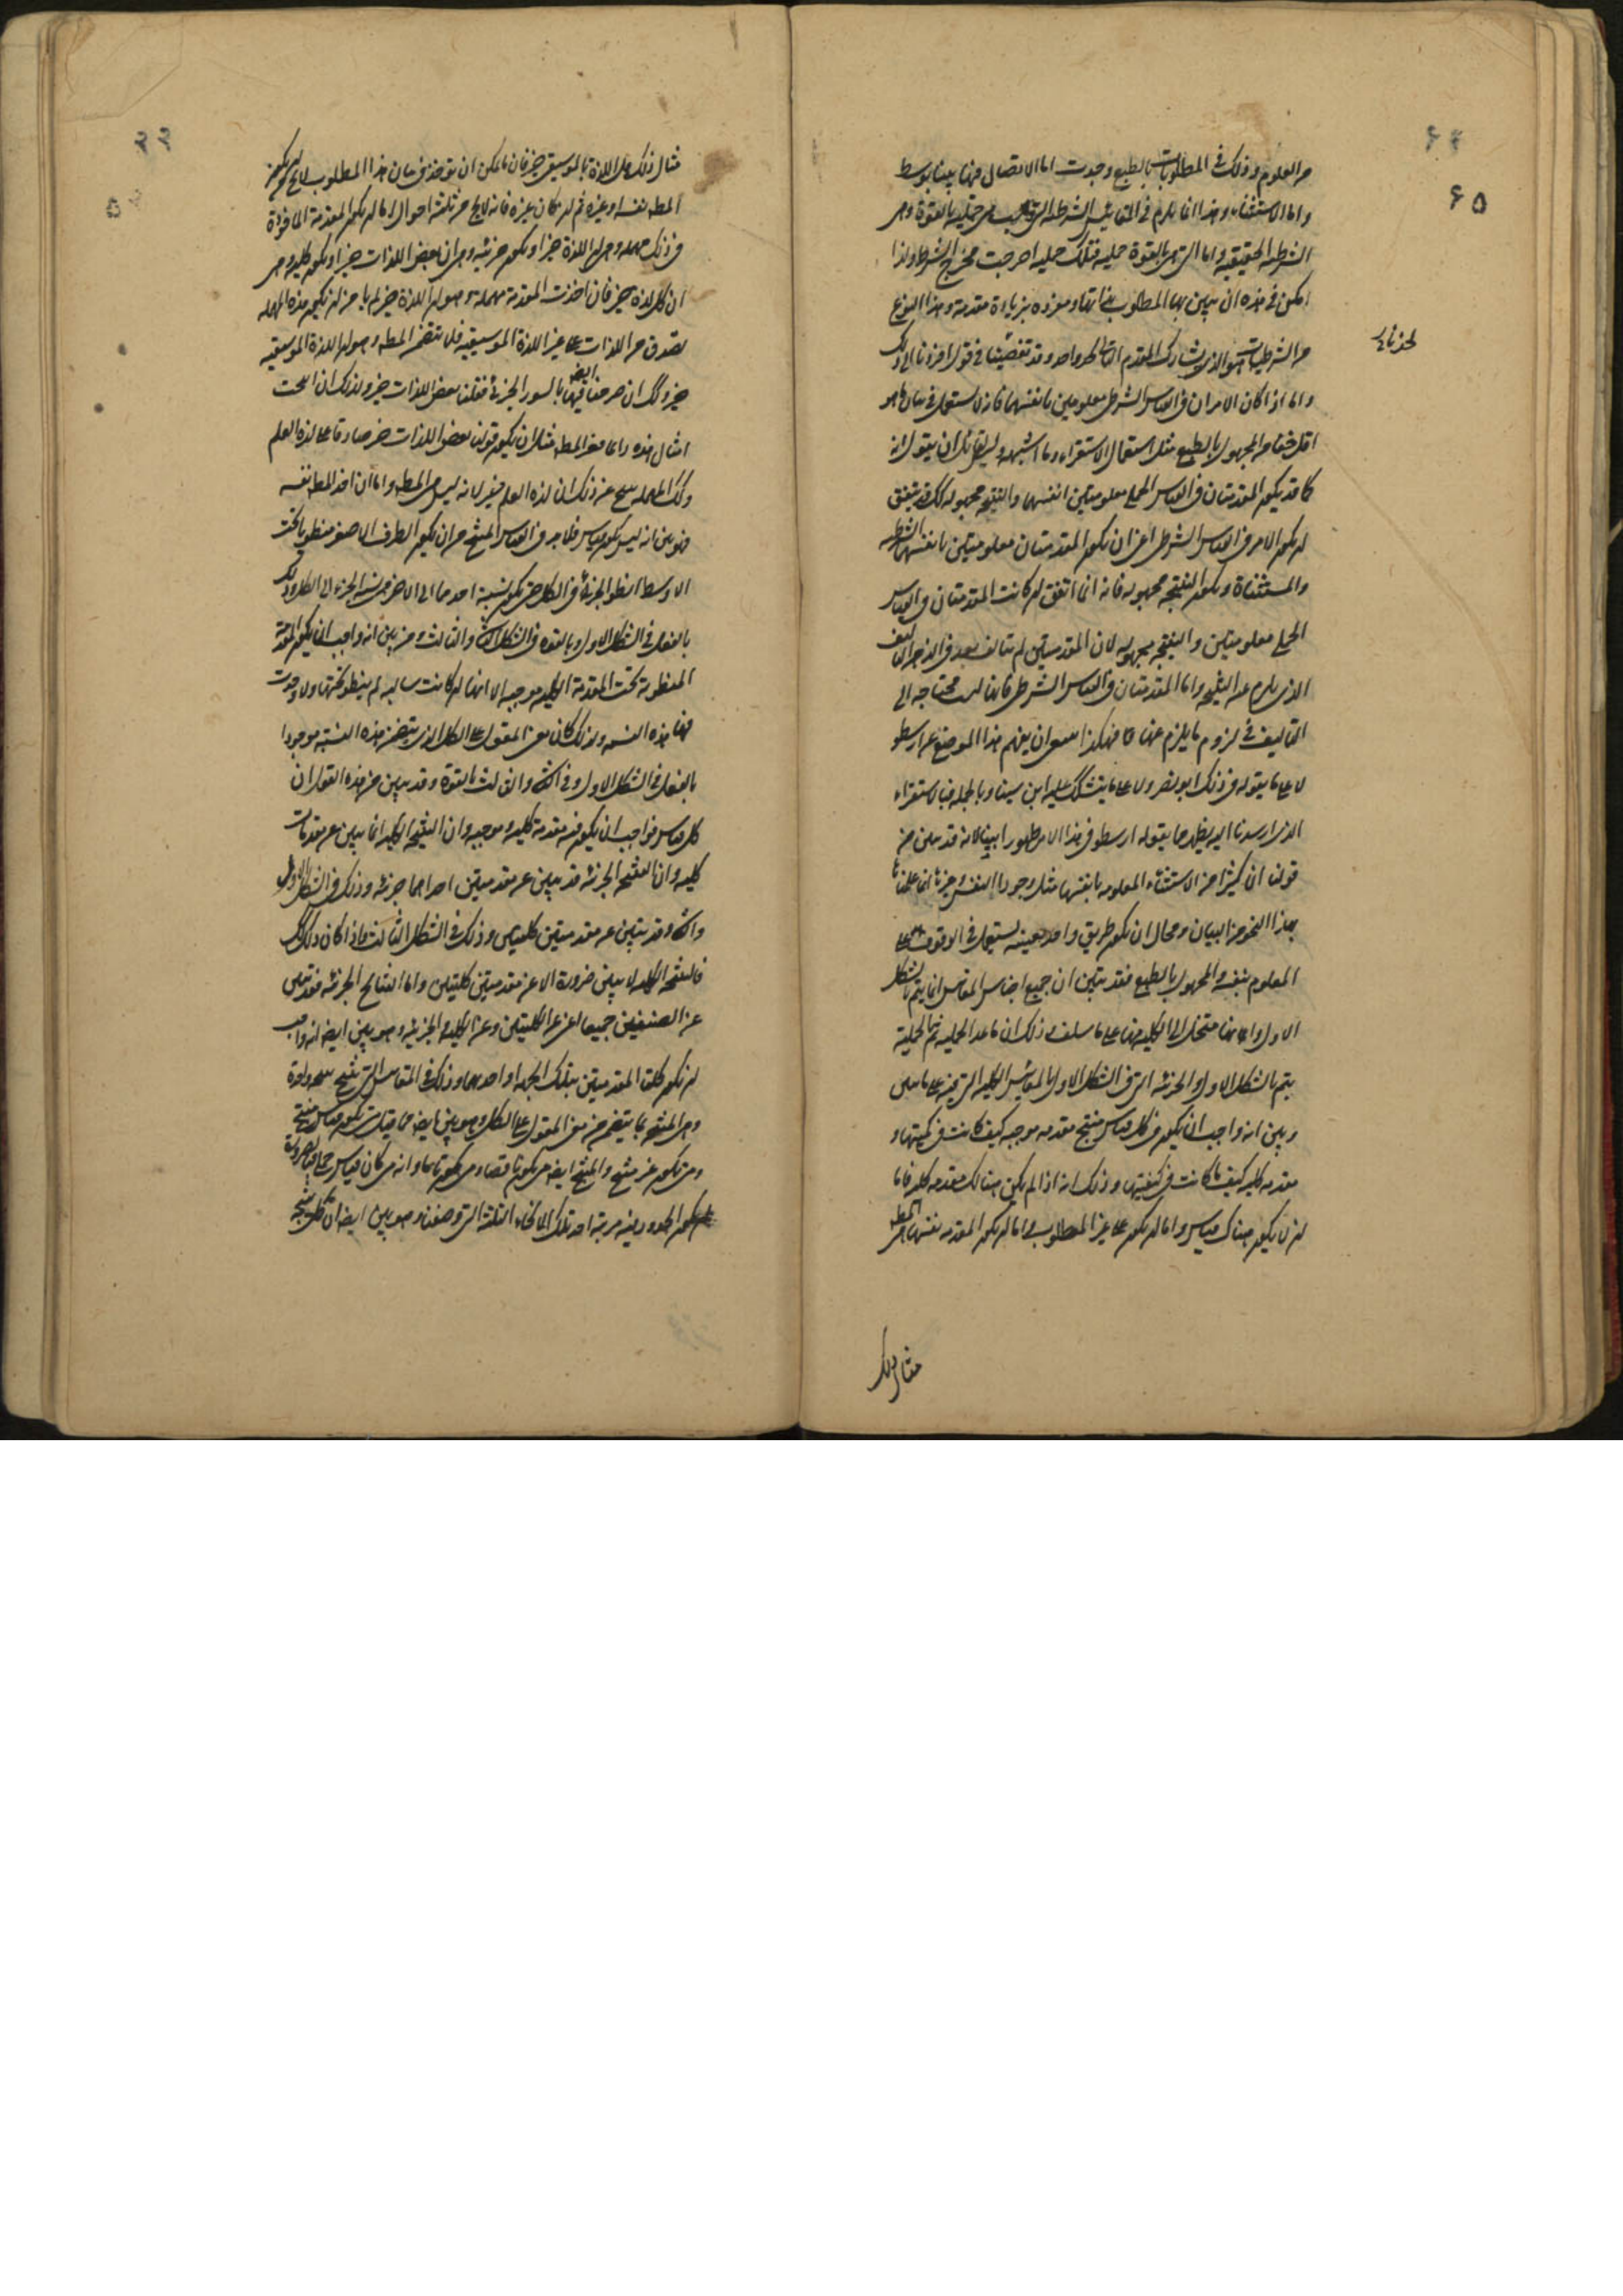 ٦٥
من العلوم وذلك في المطلوبات بالطبع وجدت اما الاتصال فيها بينا بوسط
واما الاستثناء وهذا انما يلزم في المقاييس الشرطية التي ليست هي حملية بالقوة وهي
الشرطية الحقيقية واما التي هي بالقوة حملية فتلك حملية اخرجت مخرج الشرط ولذا
امكن في هذه ان يبين بها المطلوب بذاتها ومفردة بزيادة مقدمة وهذا النوع
من الشرطيات هو الذي يشارك المقدم التالي بحد واحد وقد تقصينا في قول افردنا الى ذلك
واما اذا كان الامران في القياس الشرطي معلومين بانفسهما فانه لا يستعمل في بيان ما هو
اقل خفاء من المجهول بالطبع مثل استعمال الاستقراء وما اشبهه وليس لقائل ان يقول انه
كما قد يكون المقدمتان في القياس الحملي معلومتين انفسهما والنتيجة مجهولة كذلك قد يتفق
ان يكون الامر في القياس الشرطي اعني ان يكون المقدمتان معلومتين بانفسهما الشرطية
والمستثناة ويكون النتيجة مجهولة فانه انما اتفق ان كانت المقدمتان في القياس
الحملي معلومتين والنتيجة مجهولة لان المقدمتين لم تتالف بعد في الذهن التاليف
الذي يلزم عنه النتيجة واما المقدمتان في القياس الشرطي فانها ليست محتاجة الى
التاليف في لزوم ما يلزم عنها فهكذا ينبغي ان يفهم هذا الموضع عن ارسطو
لا على ما يقوله في ذلك ابو نصر ولا على ما يتشكك عليه ابن سينا وبالجملة فبالاستقراء
الذي ارشدنا اليه يظهر ما يقوله ارسطو في هذا الامر ظهورا بينا لانه قد تبين من
قولنا ان كثيرا من الاستثناء المعلومة بانفسها مثل وجود النفس وغيرها انما علمناها
بهذا النحو من البيان ومحال ان يكون طريق واحد بعينه يستعمل في الوقوف على
المعلوم بنفسه والمجهول بالطبع فقد تبين ان جميع اجناس المقاييس انما يتم بالشكل
الاول وانها منحل الى الكلية منها على ما سلف وذلك ان ما عدا الحملية يتم بالحملية
يتم بالشكل الاول والجزئية التي في الشكل الاول بالمقاييس الكلية التي فيه على ما تبين
وبين انه واجب ان يكون في كل قياس منتج مقدمة موجبة كيف كانت في كميتها و
مقدمة كلية كيف ما كانت في كيفيتها وذلك انه اذا لم يكن هنالك مقدمة كلية فاما
ان لا يكون هناك قياس واما ان يكون على غير المطلوب واما ان يكون المقدمة نفسها هي المطلوب
مثال ذلك
مثال ذلك هل اللذة بالموسيقى خير فان ما يمكن ان يوخذ في بيان هذا المطلوب لا يخلو ان يكون
المطلوب نفسه او غيره ثم ان كان غيره فانه لا يخلو من ثلثة احوال اما ان يكون المقدمة الماخوذة
في ذلك مهملة وهي ان اللذة خير او يكون جزئية وهي ان بعض اللذات خير او يكون كلية وهي
ان كل لذة خير فان اخذت المقدمة مهملة وهو ان اللذة خير لم يامن ان يكون هذه المهملة
تصدق من اللذات على غير اللذة الموسيقية فلا تتضمن المطلوب وهو ان اللذة الموسيقية
خير وكذلك ان صرحنا فيها ايضا بالسور الجزئي فقلنا بعض اللذات خير ولذلك ان انتجت
امثال هذه دائما غير المطلوب مثل ان يكون قولنا بعض اللذات خير صادقا على لذة العلم
وكذلك المهملة ينتج عن ذلك ان لذة العلم خير لانه ليس هي المطلوب واما ان اخذ المطلوب نفسه
فهو بين انه ليس يكون قياس فلا بد في القياس المنتج من ان يكون الطرف الاصغر منطويا تحت
الاوسط انطواء الجزئي في الكل حتى يكون نسبة احدهما الى الاخر هي نسبة الجزء الى الكل وذلك
بالفعل في الشكل الاول وبالقوة في الشكل الثاني والثالث ومن بين انه واجب ان يكون المقدمة
المنطوية تحت المقدمة الكلية موجبة الا انها ان كانت سالبة لم ينطو تحتها ولا وجدت
فيها هذه النسبة ولذلك كان معنى المقول على الكل الذي يتضمن هذه النسبة موجودا
بالفعل في الشكل الاول وفي الثاني والثالث بالقوة وقد يبين من هذه القول ان
كل قياس فواجب ان يكون فيه مقدمة كلية وموجبة وان النتيجة الكلية انما يبين عن مقدمات
كلية وان النتيجة الجزئية قد يبين عن مقدمتين احداهما جزئية وذلك في الشكل الاول
والثاني وقد يتبين عن مقدمتين كليتين وذلك في الشكل الثالث واذا كان ذلك كذلك
فالنتيجة الكلية لا يبين ضرورة الا عن مقدمتين كليتين واما النتائج الجزئية فقد تبين
عن الصنفين جميعا اعني عن الكليتين وعن الكلية والجزئية وهو بين ايضا انه واجب
ان يكون كلتا المقدمتين بتلك الجهة او احديهما وذلك في المقاييس التي ينتج نتيجة واحدة
وهي المنتجة بما يتضمن من معنى المقول على الكل وهو بين ايضا متى قياس يكون قياس منتج
ومتى يكون غير منتج والمنتج ايضا متى يكون ناقصا ومتى يكون تاما وانه متى كان قياس حملي فبالضرورة
يكون الحدود فيه مرتبة احد تلك الانحاء الثلثة التي وصفنا وهو بين ايضا ان كل نتيجة